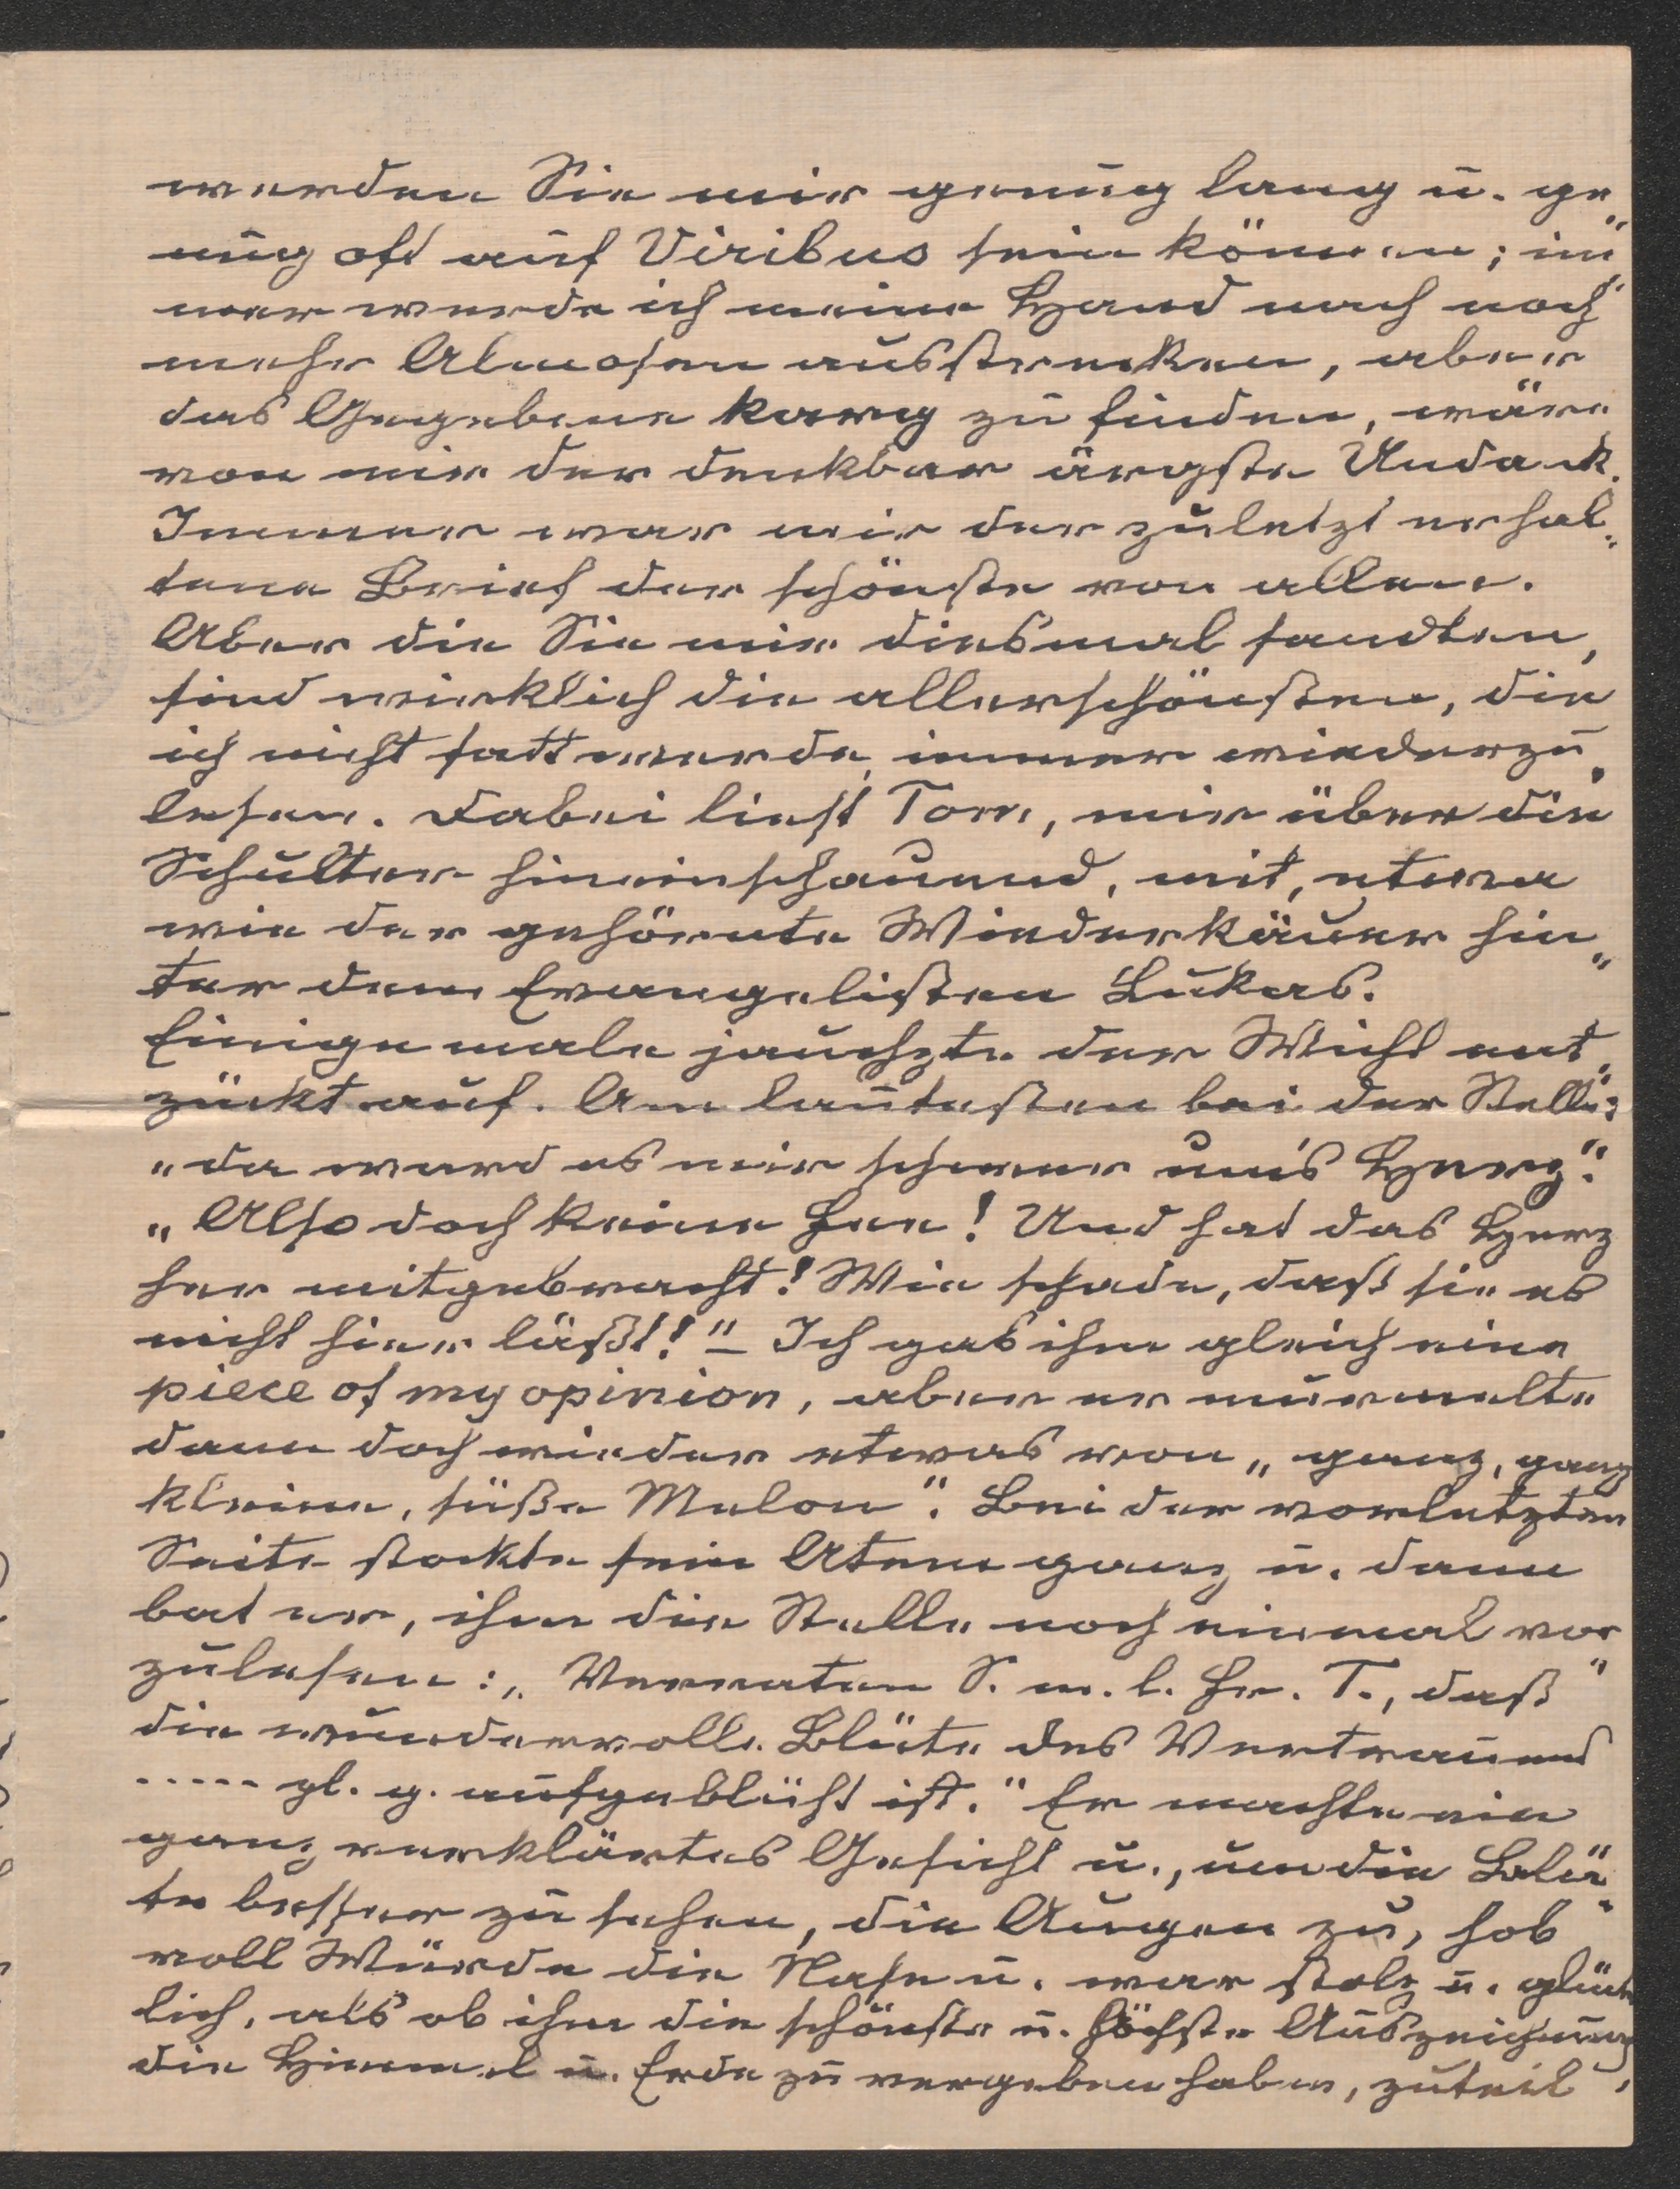 werden Sie mir genug lang u. ge„
nug oft auf Viribus sein können; im„
mer werde ich meine Hand nach noch
mehr Almosen ausstrecken, aber
das Gegebene karg zu finden, wäre
von mir der denkbar ärgste Undank.
Immer war mir der zuletzt erhal„
tene Brief der schönste von allen.
Aber die Sie mir diesmal sandten,
sind wirklich die allerschönsten, die
ich nicht satt werde, immer wiederzu„
lesen. Dabei liest Tom, mir über die
Schulter hineinschauend, mit, etwa
wie der gehörnte Wiederkäuer hin„
ter dem Evangelisten Lukas.
Einigemale jauchzte der Wicht ent„
zückt auf. Am lautesten bei der Stelle:
„da ward es mir schwer um's Herz“.
„Also doch keine Fee! Und hat das Herz
her mitgebracht! Wie schade, dass sie es
nicht hier läßt!“ – Ich gab ihm gleich eine
piece of my opinion, aber er murmelte
dann doch wieder etwas von „ganz, ganz
kleine, süße Melon“. Bei der vorletzten
Seite stockte sein Atem ganz u. dann
bat er, ihm die Stelle noch einmal vor„
zulesen: „Verraten S. m. l. Fr. T., daß
die wundervolle Blüte des Vertrauens
----- gl. g. aufgeblüht ist.“ Er machte ein
ganz verklärtes Gesicht u., um die Blü„
te besser zu sehen, die Augen zu, hob
voll Würde die Nase u. war stolz u. glück
lich, als ob ihm die schönste u. höchste Auszeichnung
die Himmel u. Erde zu vergeben haben, zuteil